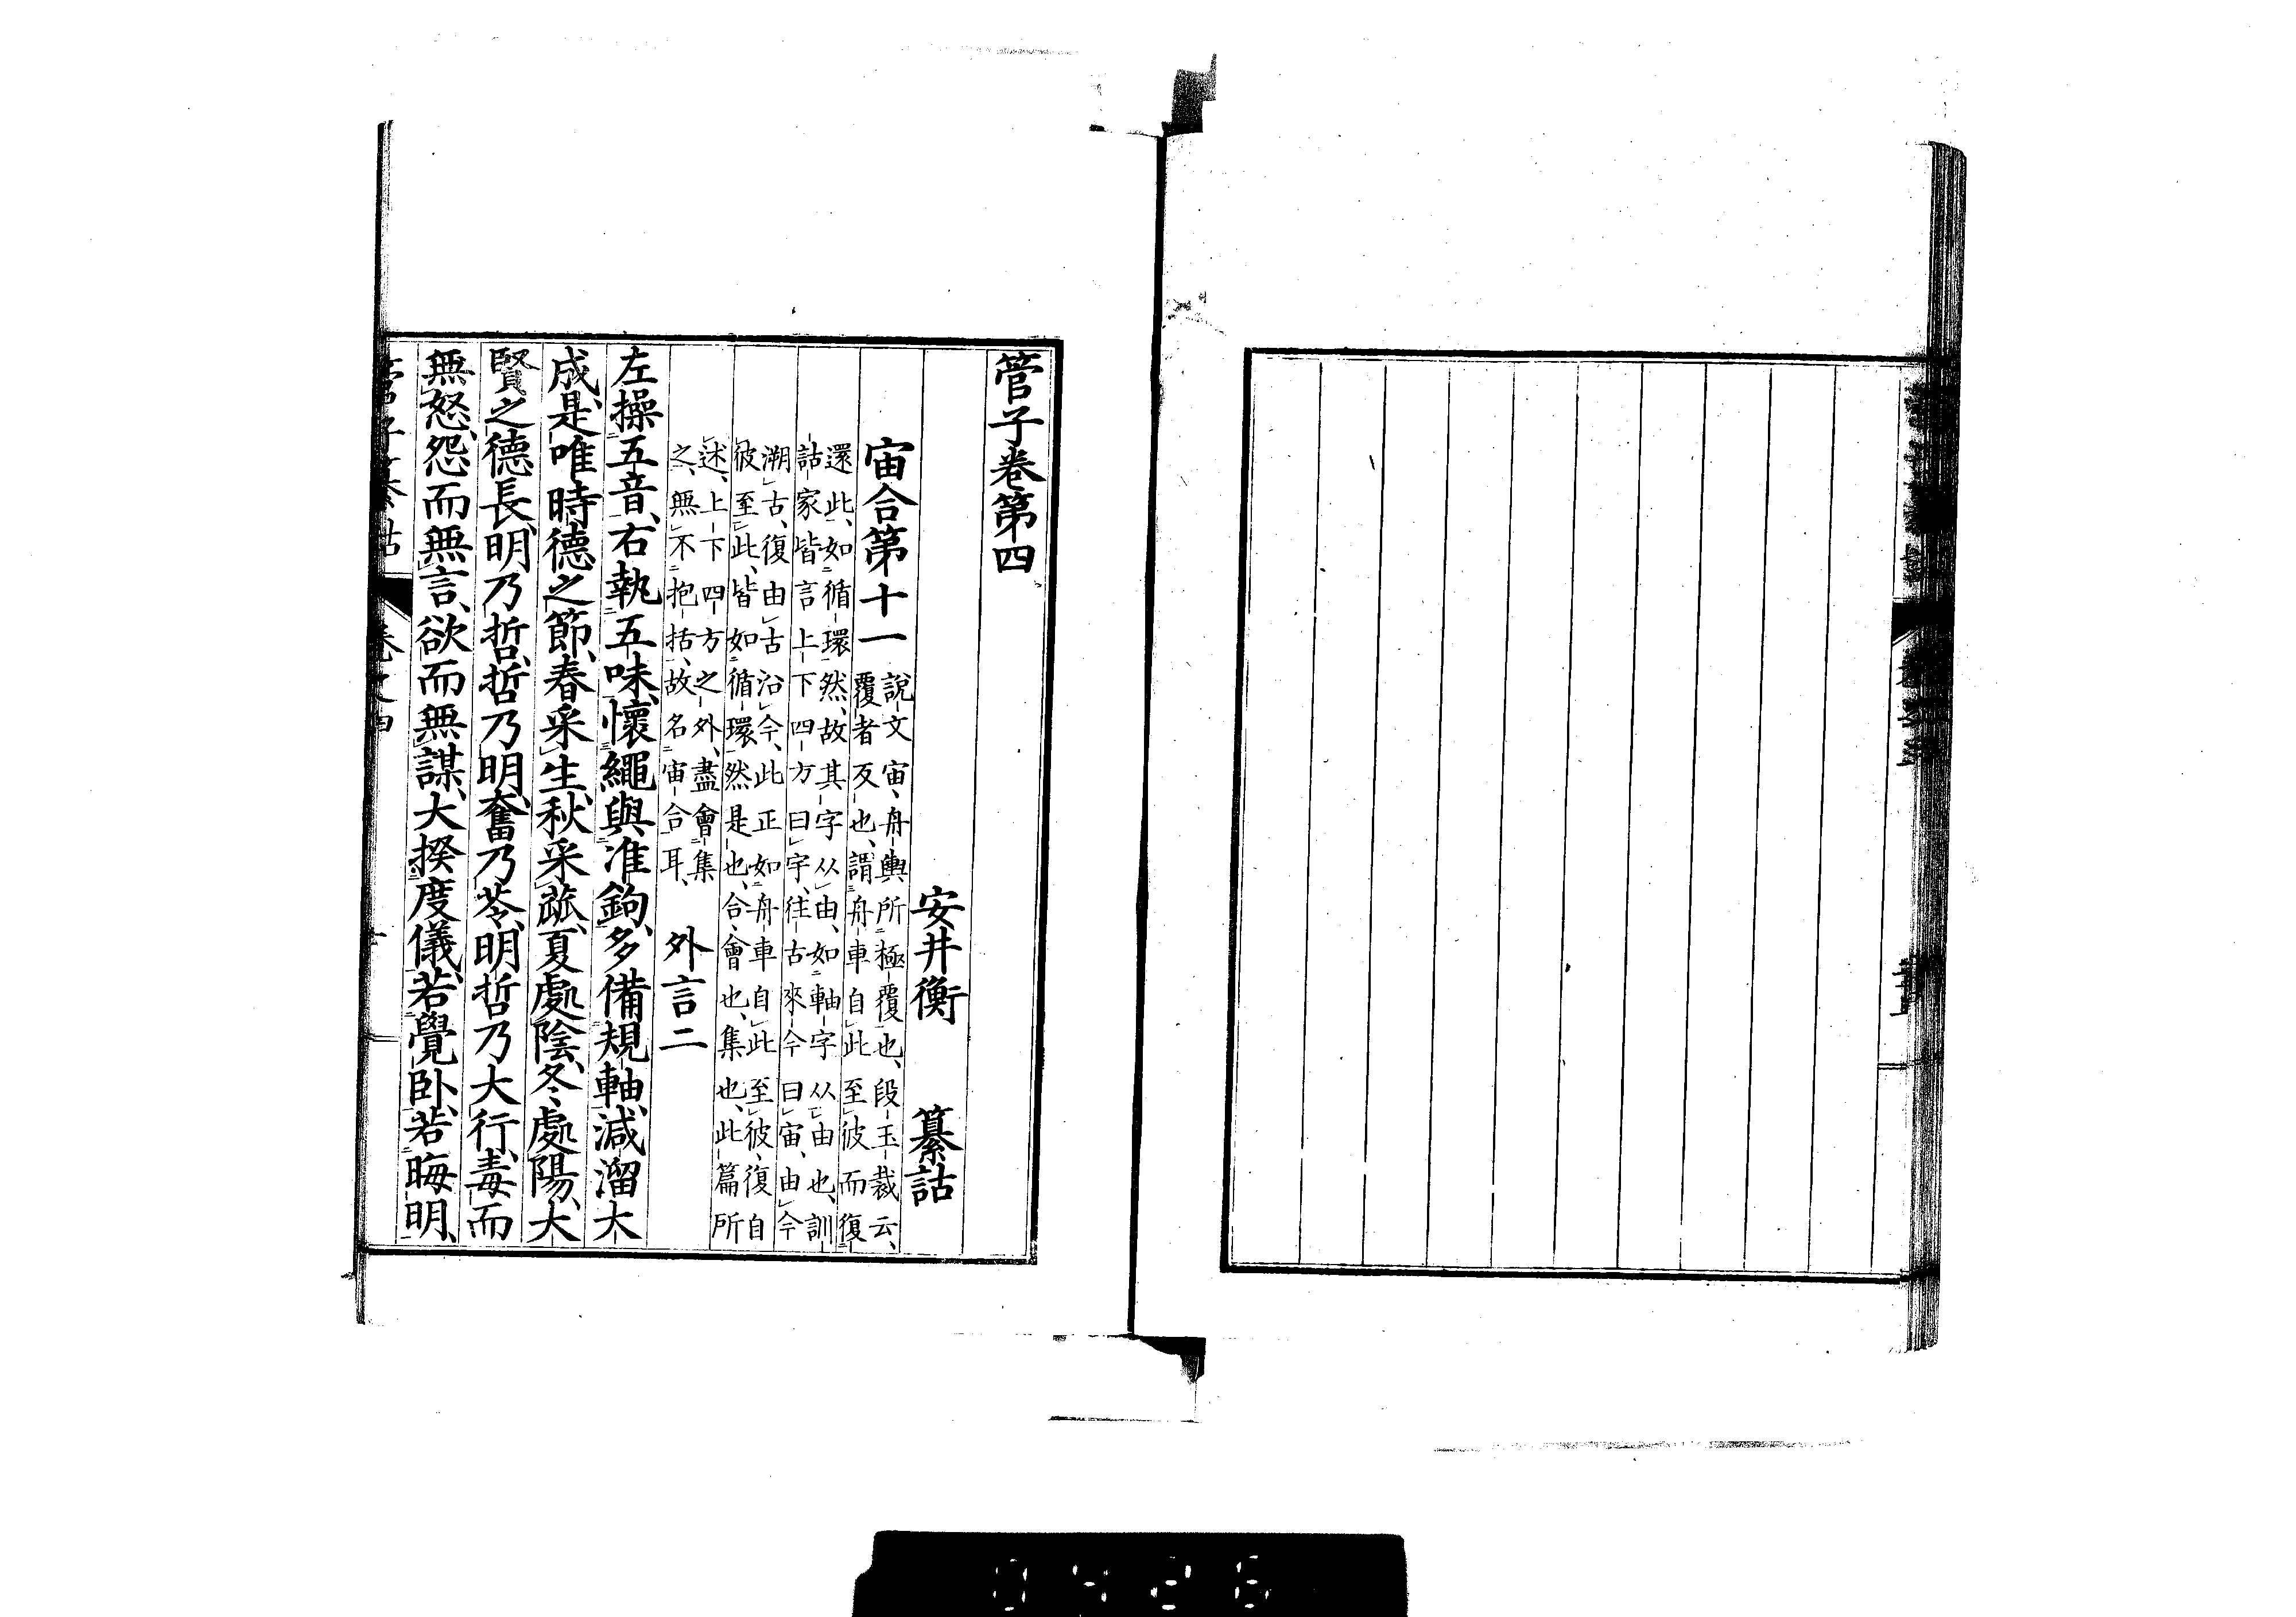 管子卷第四
安井衡　纂詁
宙合第十一
說文宙、舟輿所極覆也、段玉裁云、
覆者反也、謂舟車自此至彼而復
還此、如循環然、故其字从由、如軸字从由也、訓
詁家皆言上下四方曰宇、往古來今曰宙、由今
溯古、復由古沿今、此正如舟車自此至彼、復自
彼至此、皆如循環然是也、合、會也、集也、此篇所
述、上下四方之外、盡會集
之、無不抱括、故名宙合耳、
外言二
左操五音、右執五味、懷繩與准鉤、多備規軸、減溜大
成、是唯時德之節、春采生、秋采蓏、夏處陰、冬處陽、大
賢之德長、明乃哲、哲乃明、奮乃苓、明哲乃大行、毒而
無怒、怨而無言、欲而無謀、大揆度儀、若覺臥、若晦明、
管子纂詁　卷之四
0426